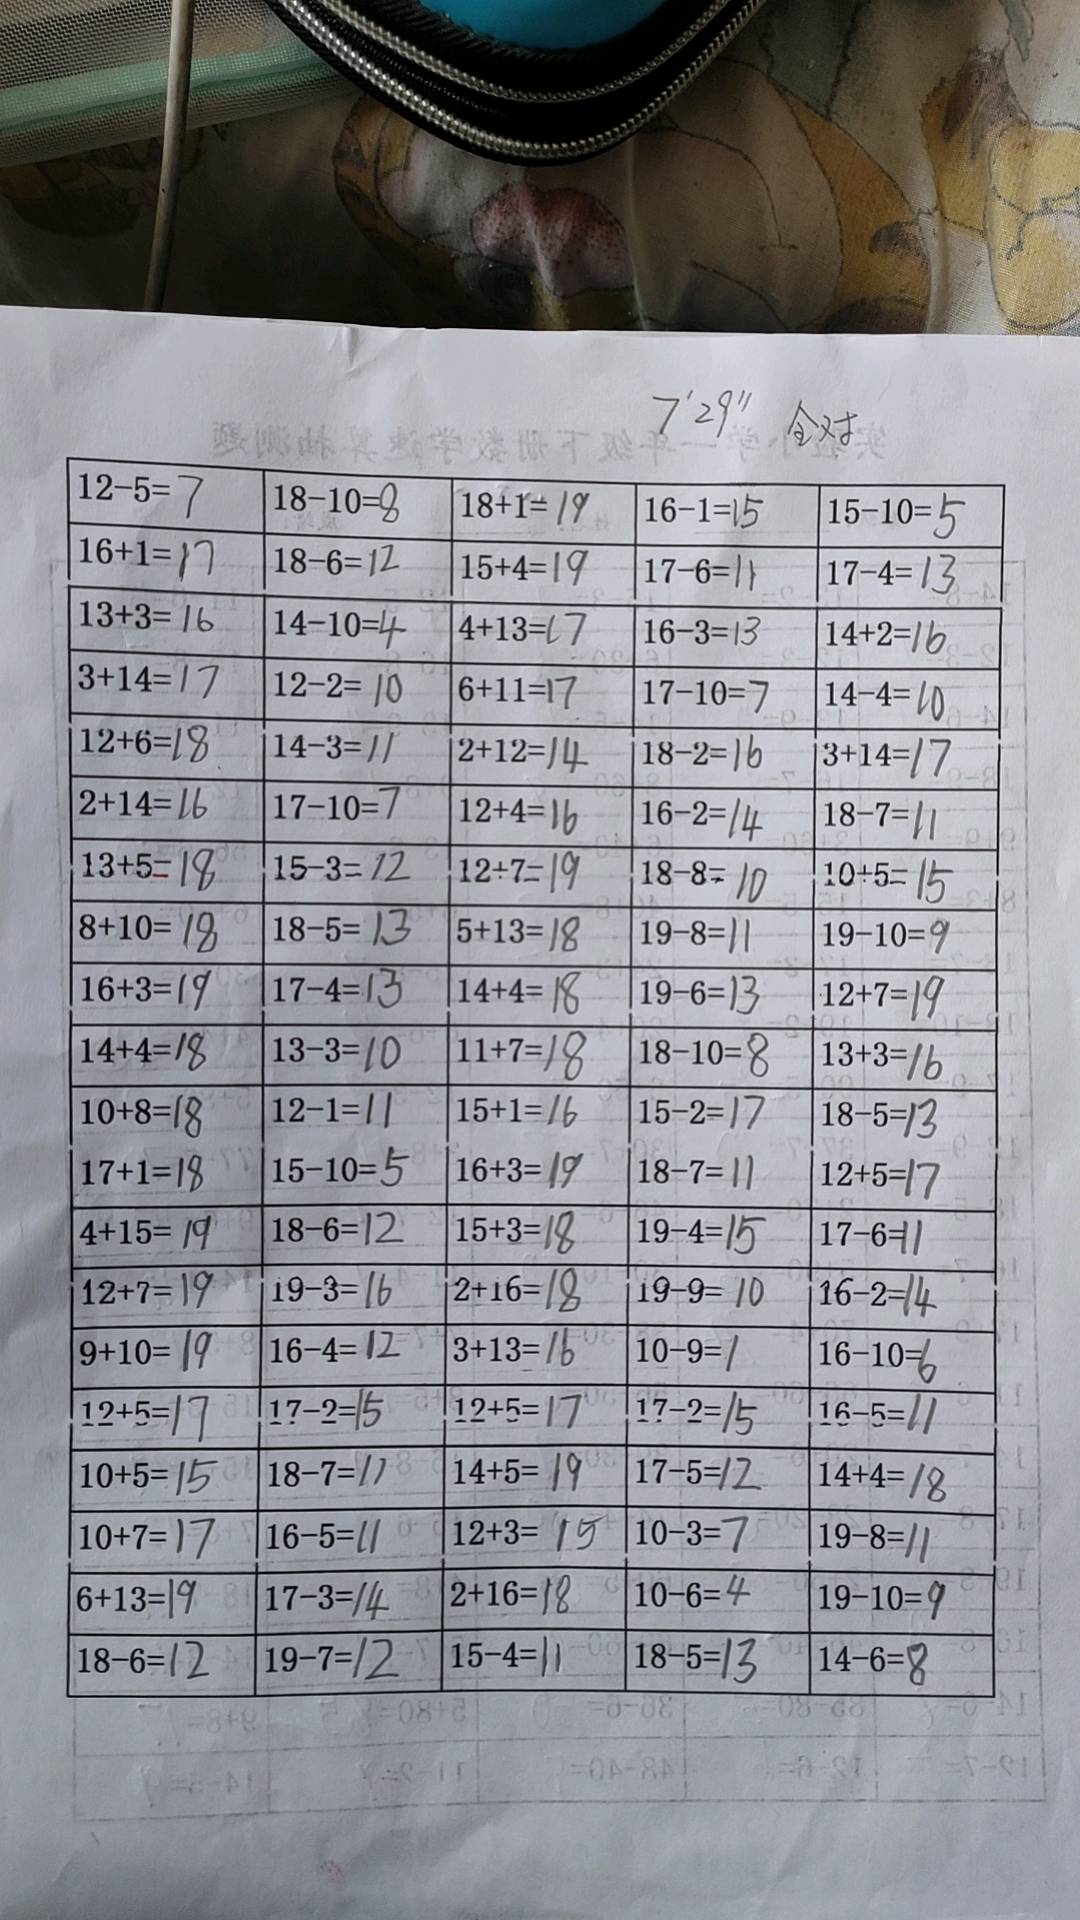 7'29" 全对
12-5=7 18-10=8 18+1=19 16-1=15 15-10=5
16+1=17 18-6=12 15+4=19 17-6=11 17-4=13
13+3=16 14-10=4 4+13=17 16-3=13 14+2=16
3+14=17 12-2=10 6+11=17 17-10=7 14-4=10
12+6=18 14-3=11 2+12=14 18-2=16 3+14=17
2+14=16 17-10=7 12+4=16 16-2=14 18-7=11
13+5=18 15-3=12 12+7=19 18-8=10 10+5=15
8+10=18 18-5=13 5+13=18 19-8=11 19-10=9
16+3=19 17-4=13 14+4=18 19-6=13 12+7=19
14+4=18 13-3=10 11+7=18 18-10=8 13+3=16
10+8=18 12-1=11 15+1=16 15-2=17 18-5=13
17+1=18 15-10=5 16+3=19 18-7=11 12+5=17
4+15=19 18-6=12 15+3=18 19-4=15 17-6=11
12+7=19 19-3=16 2+16=18 19-9=10 16-2=14
9+10=19 16-4=12 3+13=16 10-9=1 16-10=6
12+5=17 17-2=15 12+5=17 17-2=15 16-5=11
10+5=15 18-7=11 14+5=19 17-5=12 14+4=18
10+7=17 16-5=11 12+3=15 10-3=7 19-8=11
6+13=19 17-3=14 2+16=18 10-6=4 19-10=9
18-6=12 19-7=12 15-4=11 18-5=13 14-6=8